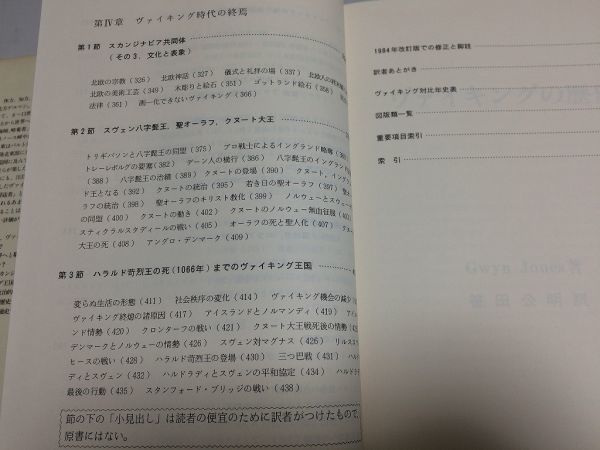 第Ⅳ章　ヴァイキング時代の終焉
第1節　スカンジナビア共同体
（その3．文化と表象）
北欧の宗教（326）　北欧神話（327）　儀式と礼拝の場（337）　北欧人の
北欧の美術工芸（349）　木彫りと絵石（351）　ゴットランド絵石（358）
法律（361）　画一化できないヴァイキング（366）
第2節　スヴェン八字髭王，聖オーラフ，クヌート大王
トリギバソンと八字髭王の同盟（375）　プロ戦士によるイングランド略奪
トレーレボルグの要塞（382）　デーン人の横行（386）　八字髭王のイングランド
（388）　八字髭王の治績（389）　クヌートの登場（390）　クヌート，イングラン
ド王となる（392）　クヌートの統治（395）　若き日の聖オーラフ（397）
ラフの統治（398）　聖オーラフのキリスト教化（399）　ノルウェーとスウェ
の同盟（400）　クヌートの動き（402）　クヌートのノルウェー無血征服
スティクラルスタディールの戦い（405）　オーラフの死と聖人化（407）
大王の死（408）　アングロ・デンマーク（409）
第3節　ハラルド苛烈王の死（1066年）までのヴァイキング王国
変らぬ生活の形態（411）　社会秩序の変化（414）　ヴァイキング機会の減少
ヴァイキング終熄の諸原因（417）　アイスランドとノルマンディ（419）
ンド情勢（420）　クロンターフの戦い（421）　クヌート大王戦死後の情勢
デンマークとノルウェーの情勢（426）　スヴェン対マグナス（426）　リルス
ヒースの戦い（428）　ハラルド苛烈王の登場（430）　三つ巴戦（431）　ハル
ディとスヴェン（432）　ハルドラディとスヴェンの平和協定（434）　ハルドラ
最後の行動（435）　スタンフォード・ブリッジの戦い（438）
節の下の「小見出し」は読者の便宜のために訳者がつけたもので，
原書にはない。
1984年改訂版での修正と脚註
訳者あとがき
ヴァイキング対比年史表
図版類一覧
重要項目索引
索　引
キングの
Gwyn Jones 著
笹田公明 訳